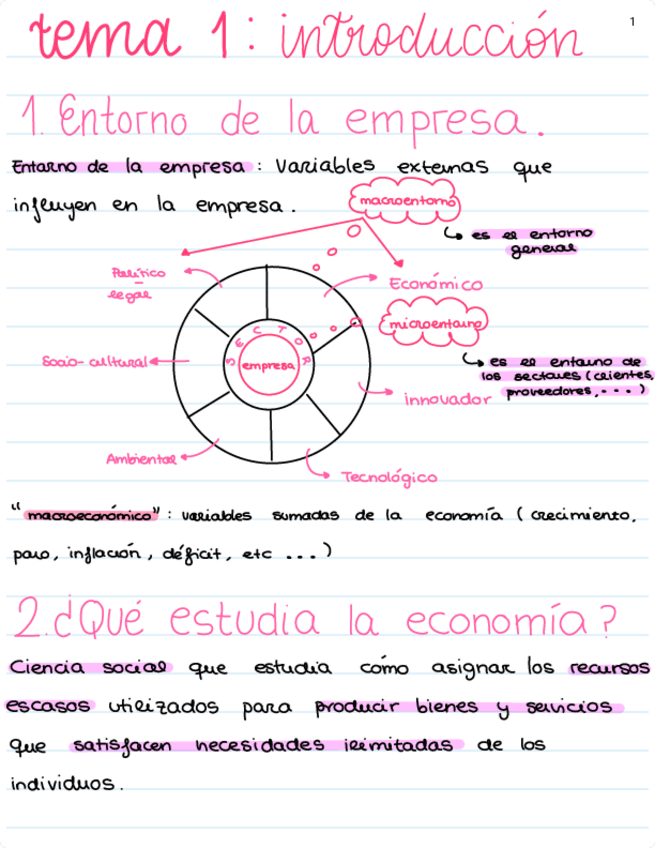 tema 1: introducción
1
1. Entorno de la empresa.
Entorno de la empresa: Variables externas que
influyen en la empresa.
macroentorno
es el entorno
general
Político
legal
Económico
microentorno
SECTOR
empresa
Socio-cultural
es el entorno de
los sectores (clientes,
proveedores,...)
innovador
Ambiental
Tecnológico
"macroeconómico": variables sumadas de la economía (crecimiento,
paro, inflación, déficit, etc ...)
2. ¿Qué estudia la economía?
Ciencia social que estudia cómo asignar los recursos
escasos utilizados para producir bienes y servicios
que satisfacen necesidades ilimitadas de los
individuos.